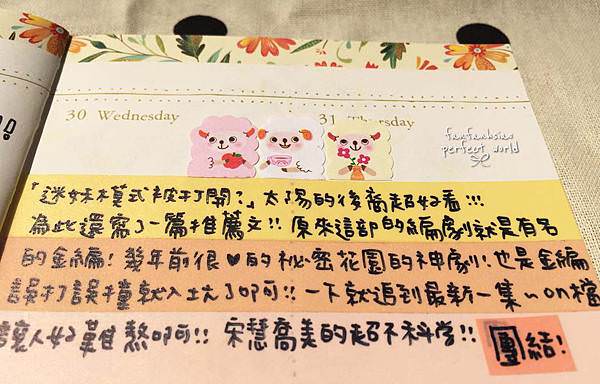 30 Wednesday
31 Thursday
fanfanhsiao
perfect world
「迷妹模式被打開?」太陽的後裔超好看!!!
為此還寫了一篇推薦文!! 原來這部的編劇就是有名
的金編! 幾年前很♥的秘密花園的神劇! 也是金編
誤打誤撞就入坑了啊!! 一下就追到最新一集~on檔
讓人好難熬啊!! 宋慧喬美的超不科學!! 團結!